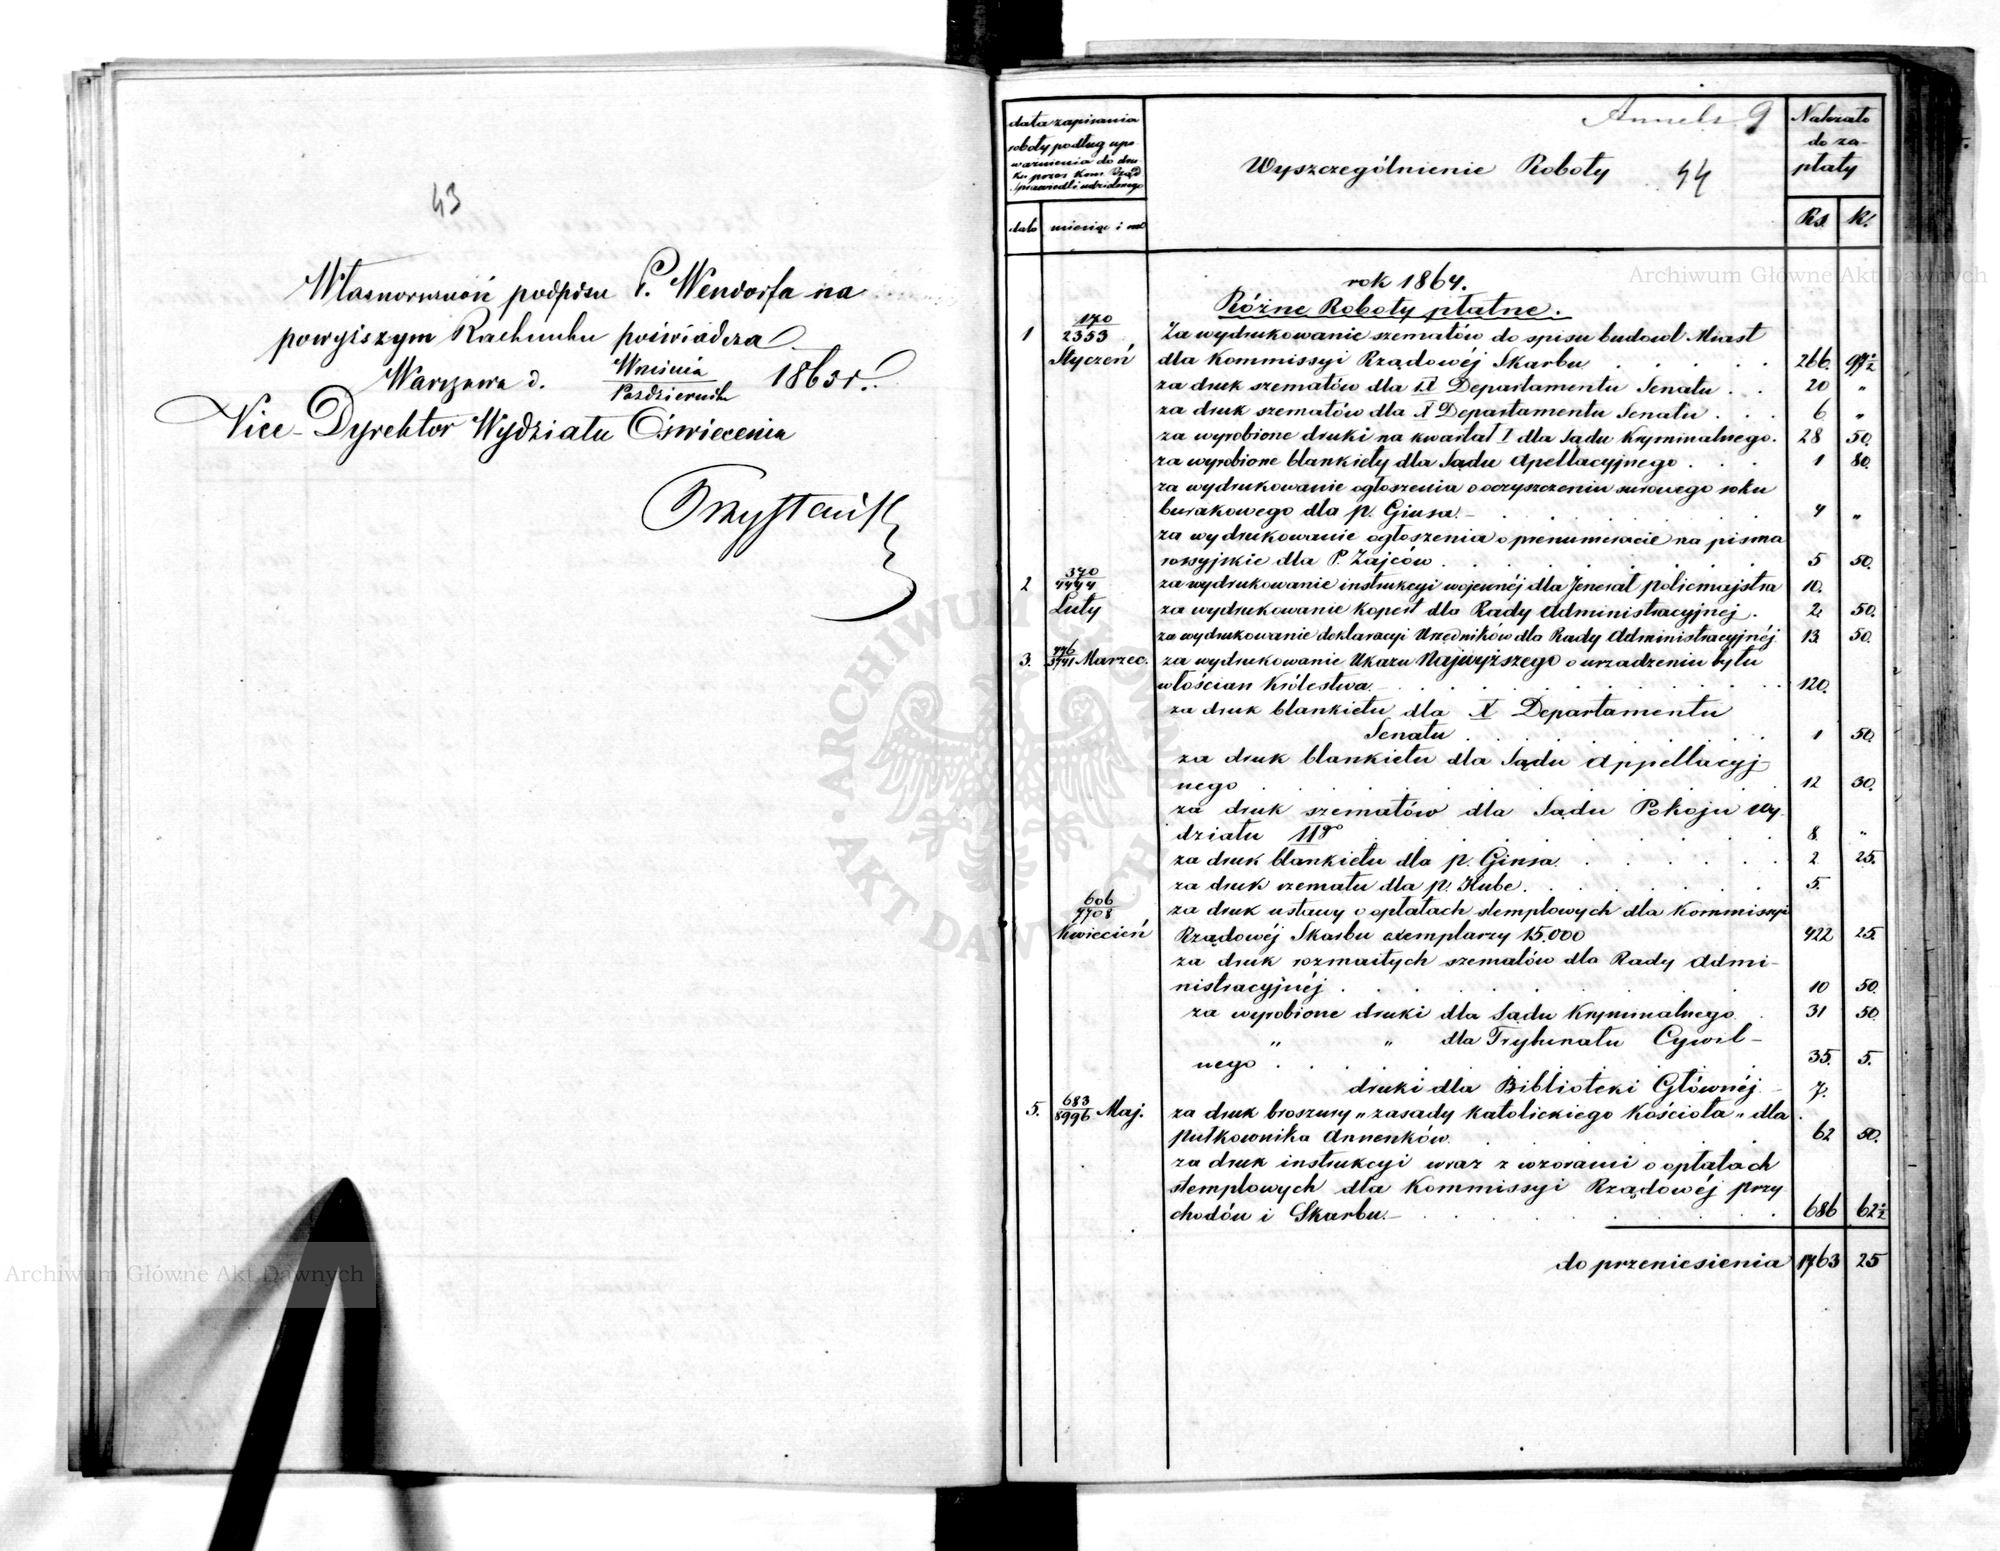 43
Własnoręczność podpisu P. Wendorfa na
powyższym Rachunku poświadcza
Warszawa d. Września / Października 1865 r.
Vice-Dyrektor Wydziału Oświecenia
Annels 9
44
data zapisania
roboty podług upo-
ważnienia do dru-
ku przez Kom. Rząd.
Sprawiedli udzielonego
Wyszczególnienie Roboty
Należało
do za-
płaty
data
miesiąc i rok
Rs.
K.
rok 1864.
Różne Roboty płatne.
1 170/2353 Za wydrukowanie szematów do spisu budowl Miast
Styczeń dla Kommissyi Rządowéj Skarbu 266. 97½
za druk szematów dla IX Departamentu Senatu 20 "
za druk szematów dla X Departamentu Senatu 6 "
za wyrobione druki na kwartał I dla Sądu Kryminalnego. 28 50.
za wyrobione blankiety dla Sądu Apellacyjnego 1 80.
za wydrukowanie ogłoszenia o oczyszczeniu surowego soku
burakowego dla p. Ginsa 4 "
za wydrukowanie ogłoszenia o prenumeracie na pisma
rossyjskie dla P. Zajców 5 50.
2 370/4444 za wydrukowanie instrukcyi wojennéj dla Jenerał Policmajstra 10.
Luty za wydrukowanie Kopert dla Rady Administracyjnej 2 50.
za wydrukowanie deklaracyi Urzędników dla Rady Administracyjnéj 13 50.
3. 446/5741 Marzec. za wydrukowanie Ukazu Najwyższego o urządzeniu bytu
włościan Królestwa 120.
za druk blankietu dla X Departamentu
Senatu 1 50.
za druk blankietu dla Sądu Appellacyj-
nego 12 30.
za druk szematów dla Sądu Pokoju Wy-
działu IIgo 8. "
za druk blankietu dla p. Ginsa 2 25.
za druk szematu dla p. Kube 5.
606/7708 za druk ustawy o opłatach stemplowych dla Kommissyi
Kwiecień Rządowéj Skarbu exemplarzy 15.000 422 25.
za druk rozmaitych szematów dla Rady Admi-
nistracyjnéj 10 50.
za wyrobione druki dla Sądu Kryminalnego 31 50.
" " dla Trybunału Cywil-
nego 35. 5.
druki dla Biblioteki Głównéj 7.
5. 683/8996 Maj. za druk broszury „zasady katolickiego Kościoła" dla
Pułkownika Annenków 62 50.
za druk instrukcyi wraz z wzorami o opłatach
stemplowych dla Kommissyi Rządowéj przy
chodów i Skarbu 686 62½
do przeniesienia 1763 25
Archiwum Główne Akt Dawnych
Archiwum Główne Akt Dawnych
ARCHIWUM GŁÓWNE AKT DAWNYCH